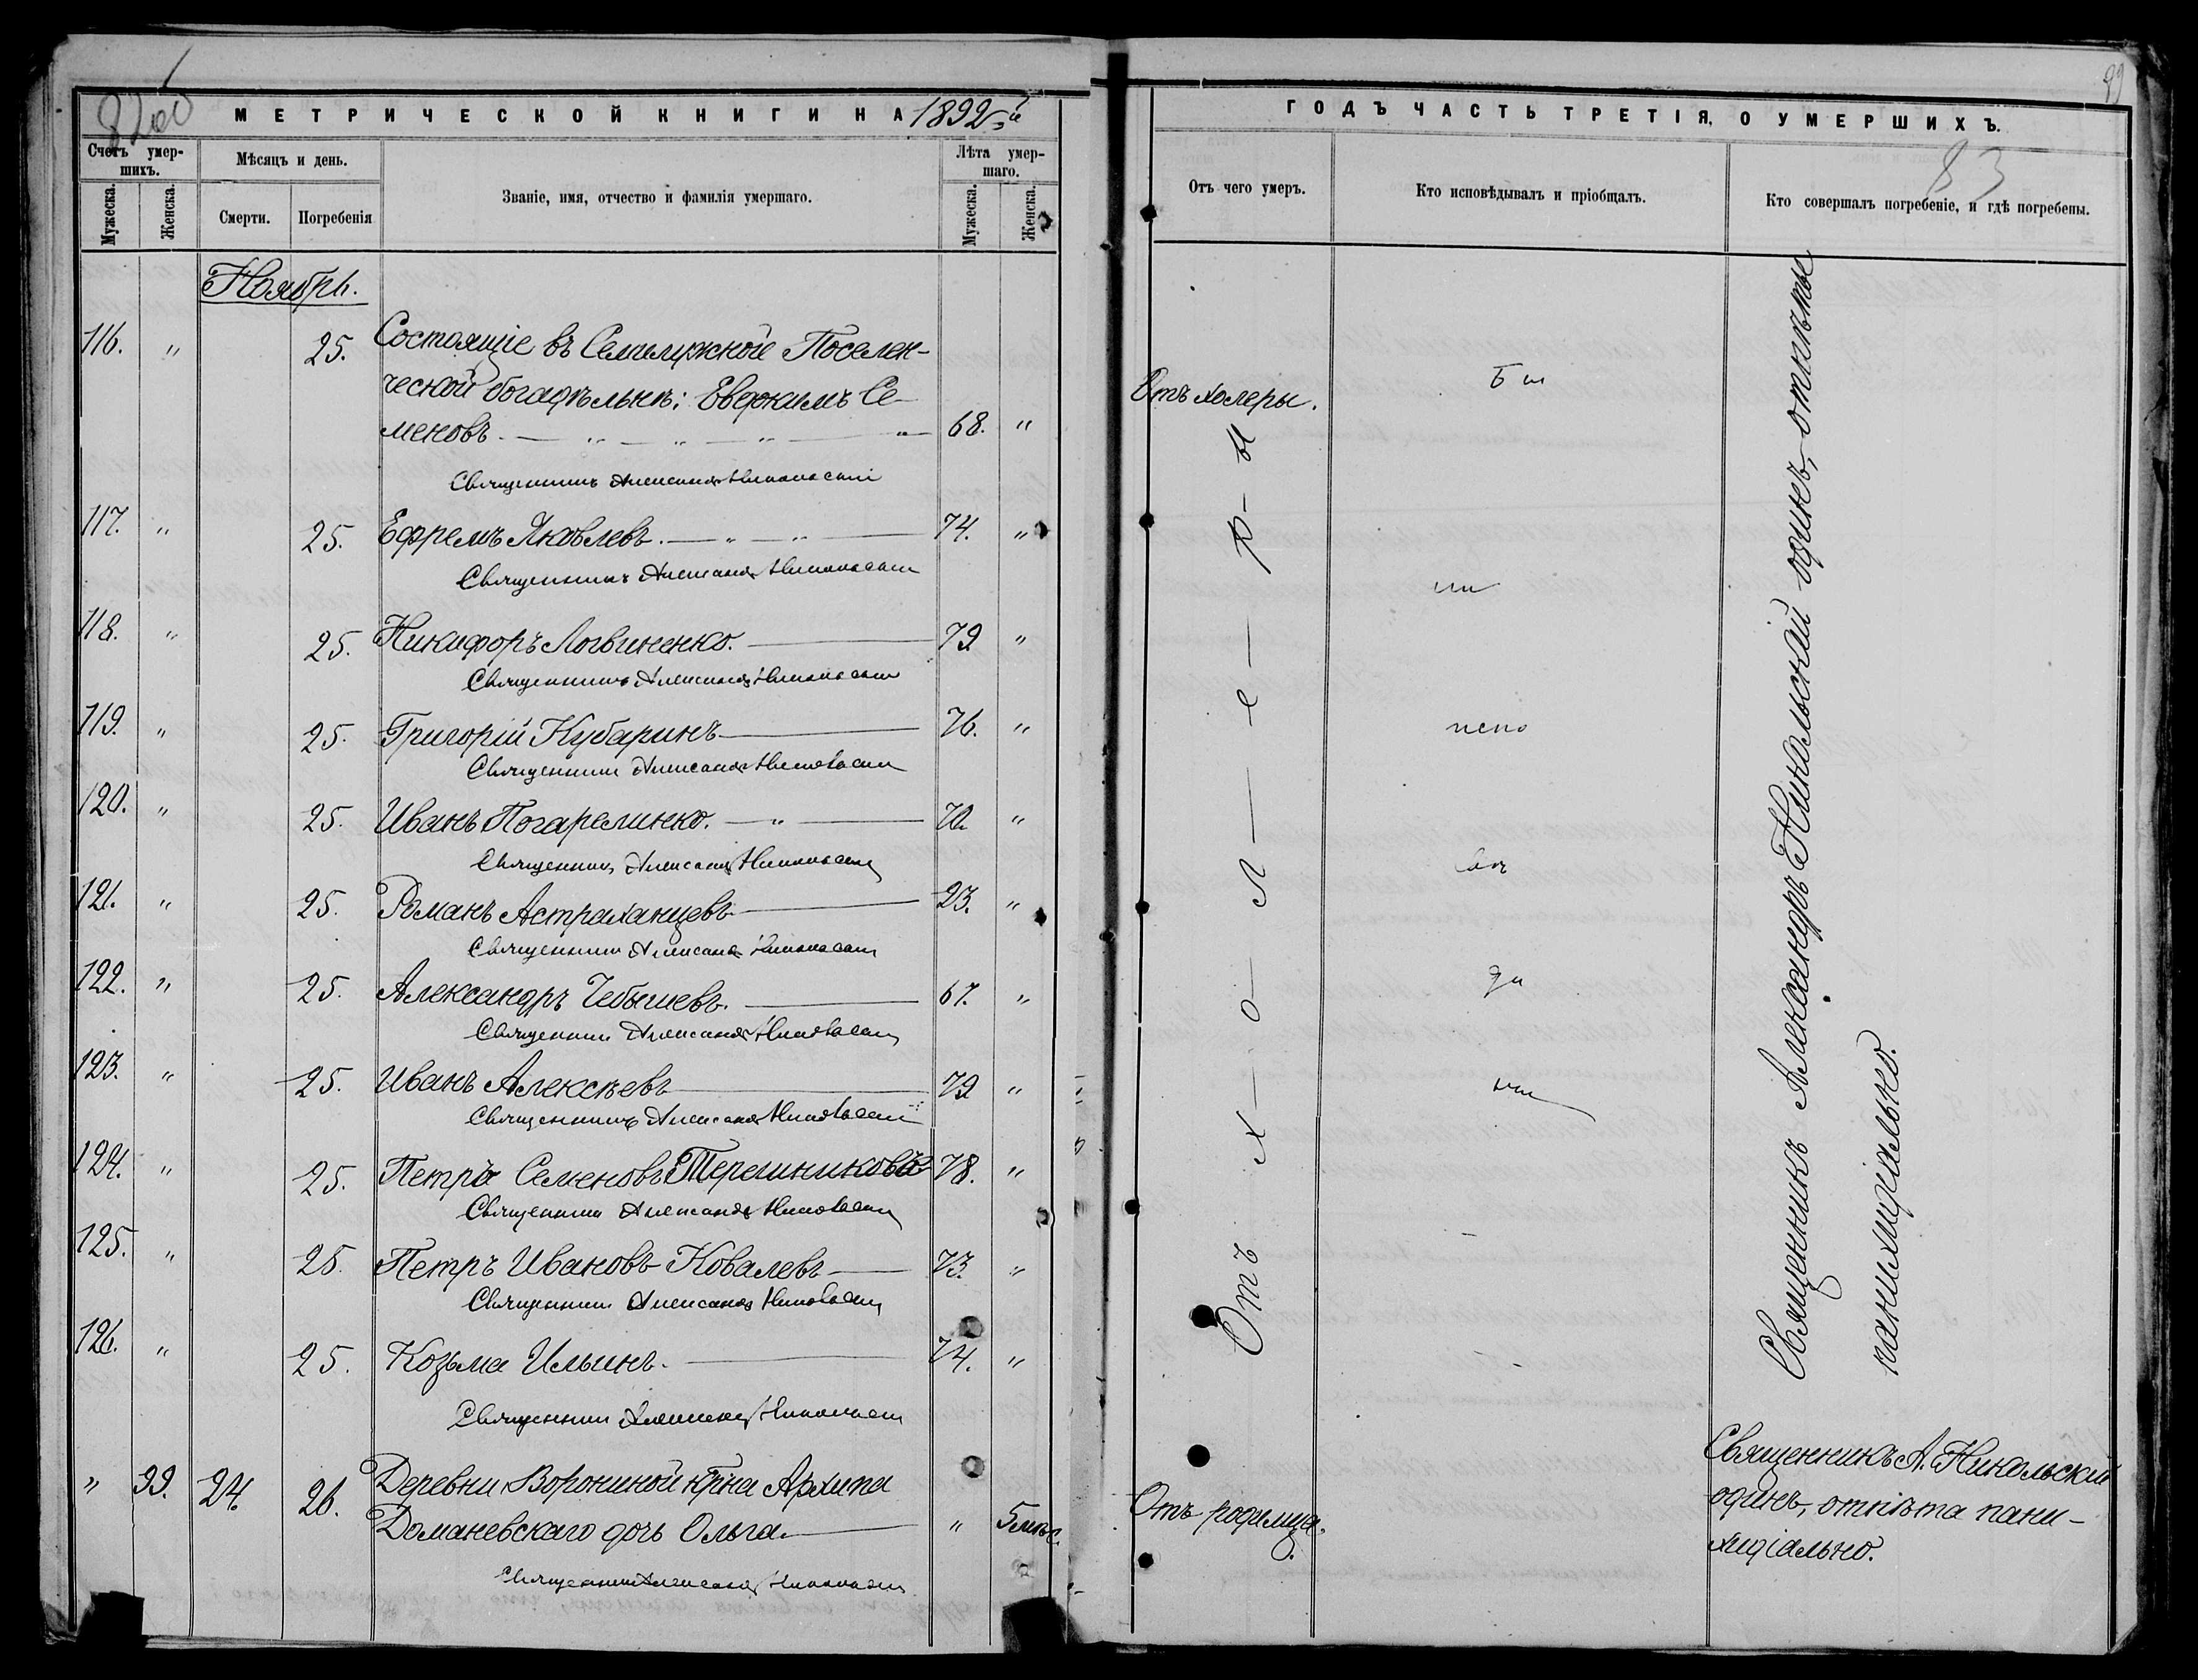 82 об
МЕТРИЧЕСКОЙ КНИГИ НА 1892-й
Счетъ умер-
шихъ.
Мѣсяцъ и день.
Званіе, имя, отчество и фамилія умершаго.
Лѣта умер-
шаго.
Мужеска.
Женска.
Смерти.
Погребенія
Мужеска.
Женска.
Ноябрь.
116. " 25. Состоящіе въ Семилужной Поселен-
ческой богадѣльнѣ: Евдокимъ Се-
меновъ. — " — " — " — " 68. "
Священникъ Александръ Никольскій
117. " 25. Ефремъ Яковлевъ. — " — " — 74. "
Священникъ Александръ Никольскій
118. " 25. Никифоръ Логвиненко. — 79 "
Священникъ Александръ Никольскій
119. " 25. Григорій Кубаринъ — 76. "
Священникъ Александръ Никольскій
120. " 25. Иванъ Погарелинко. — " — 70. "
Священникъ Александръ Никольскій
121. " 25. Романъ Астраханцевъ — 23. "
Священникъ Александръ Никольскій
122. " 25. Александръ Чебышевъ. — 67. "
Священникъ Александръ Никольскій
123. " 25. Иванъ Алексѣевъ — 79 "
Священникъ Александръ Никольскій
124. " 25. Петръ Семеновъ Терешниковъ 78. "
Священникъ Александръ Никольскій
125. " 25. Петръ Ивановъ Ковалевъ — 73. "
Священникъ Александръ Никольскій
126. " 25. Козьма Ильинъ. — 74. "
Священникъ Александръ Никольскій
" 99. 24. 26. Деревни Ворониной кр-на Архипа
Доманевскаго дочь Ольга. — " 5 мѣс.
Священникъ Александръ Никольскій
99
ГОДЪ ЧАСТЬ ТРЕТІЯ, О УМЕРШИХЪ.
83
Отъ чего умеръ.
Кто исповѣдывалъ и пріобщалъ.
Кто совершалъ погребеніе, и гдѣ погребены.
Отъ холеры.
Отъ х — о — л — е — р — ы
Священникъ Александръ Никольскій одинъ, отпѣты
панихидіально.
Отъ родимца.
Священникъ А. Никольскій
одинъ, отпѣта пани-
хидіально.